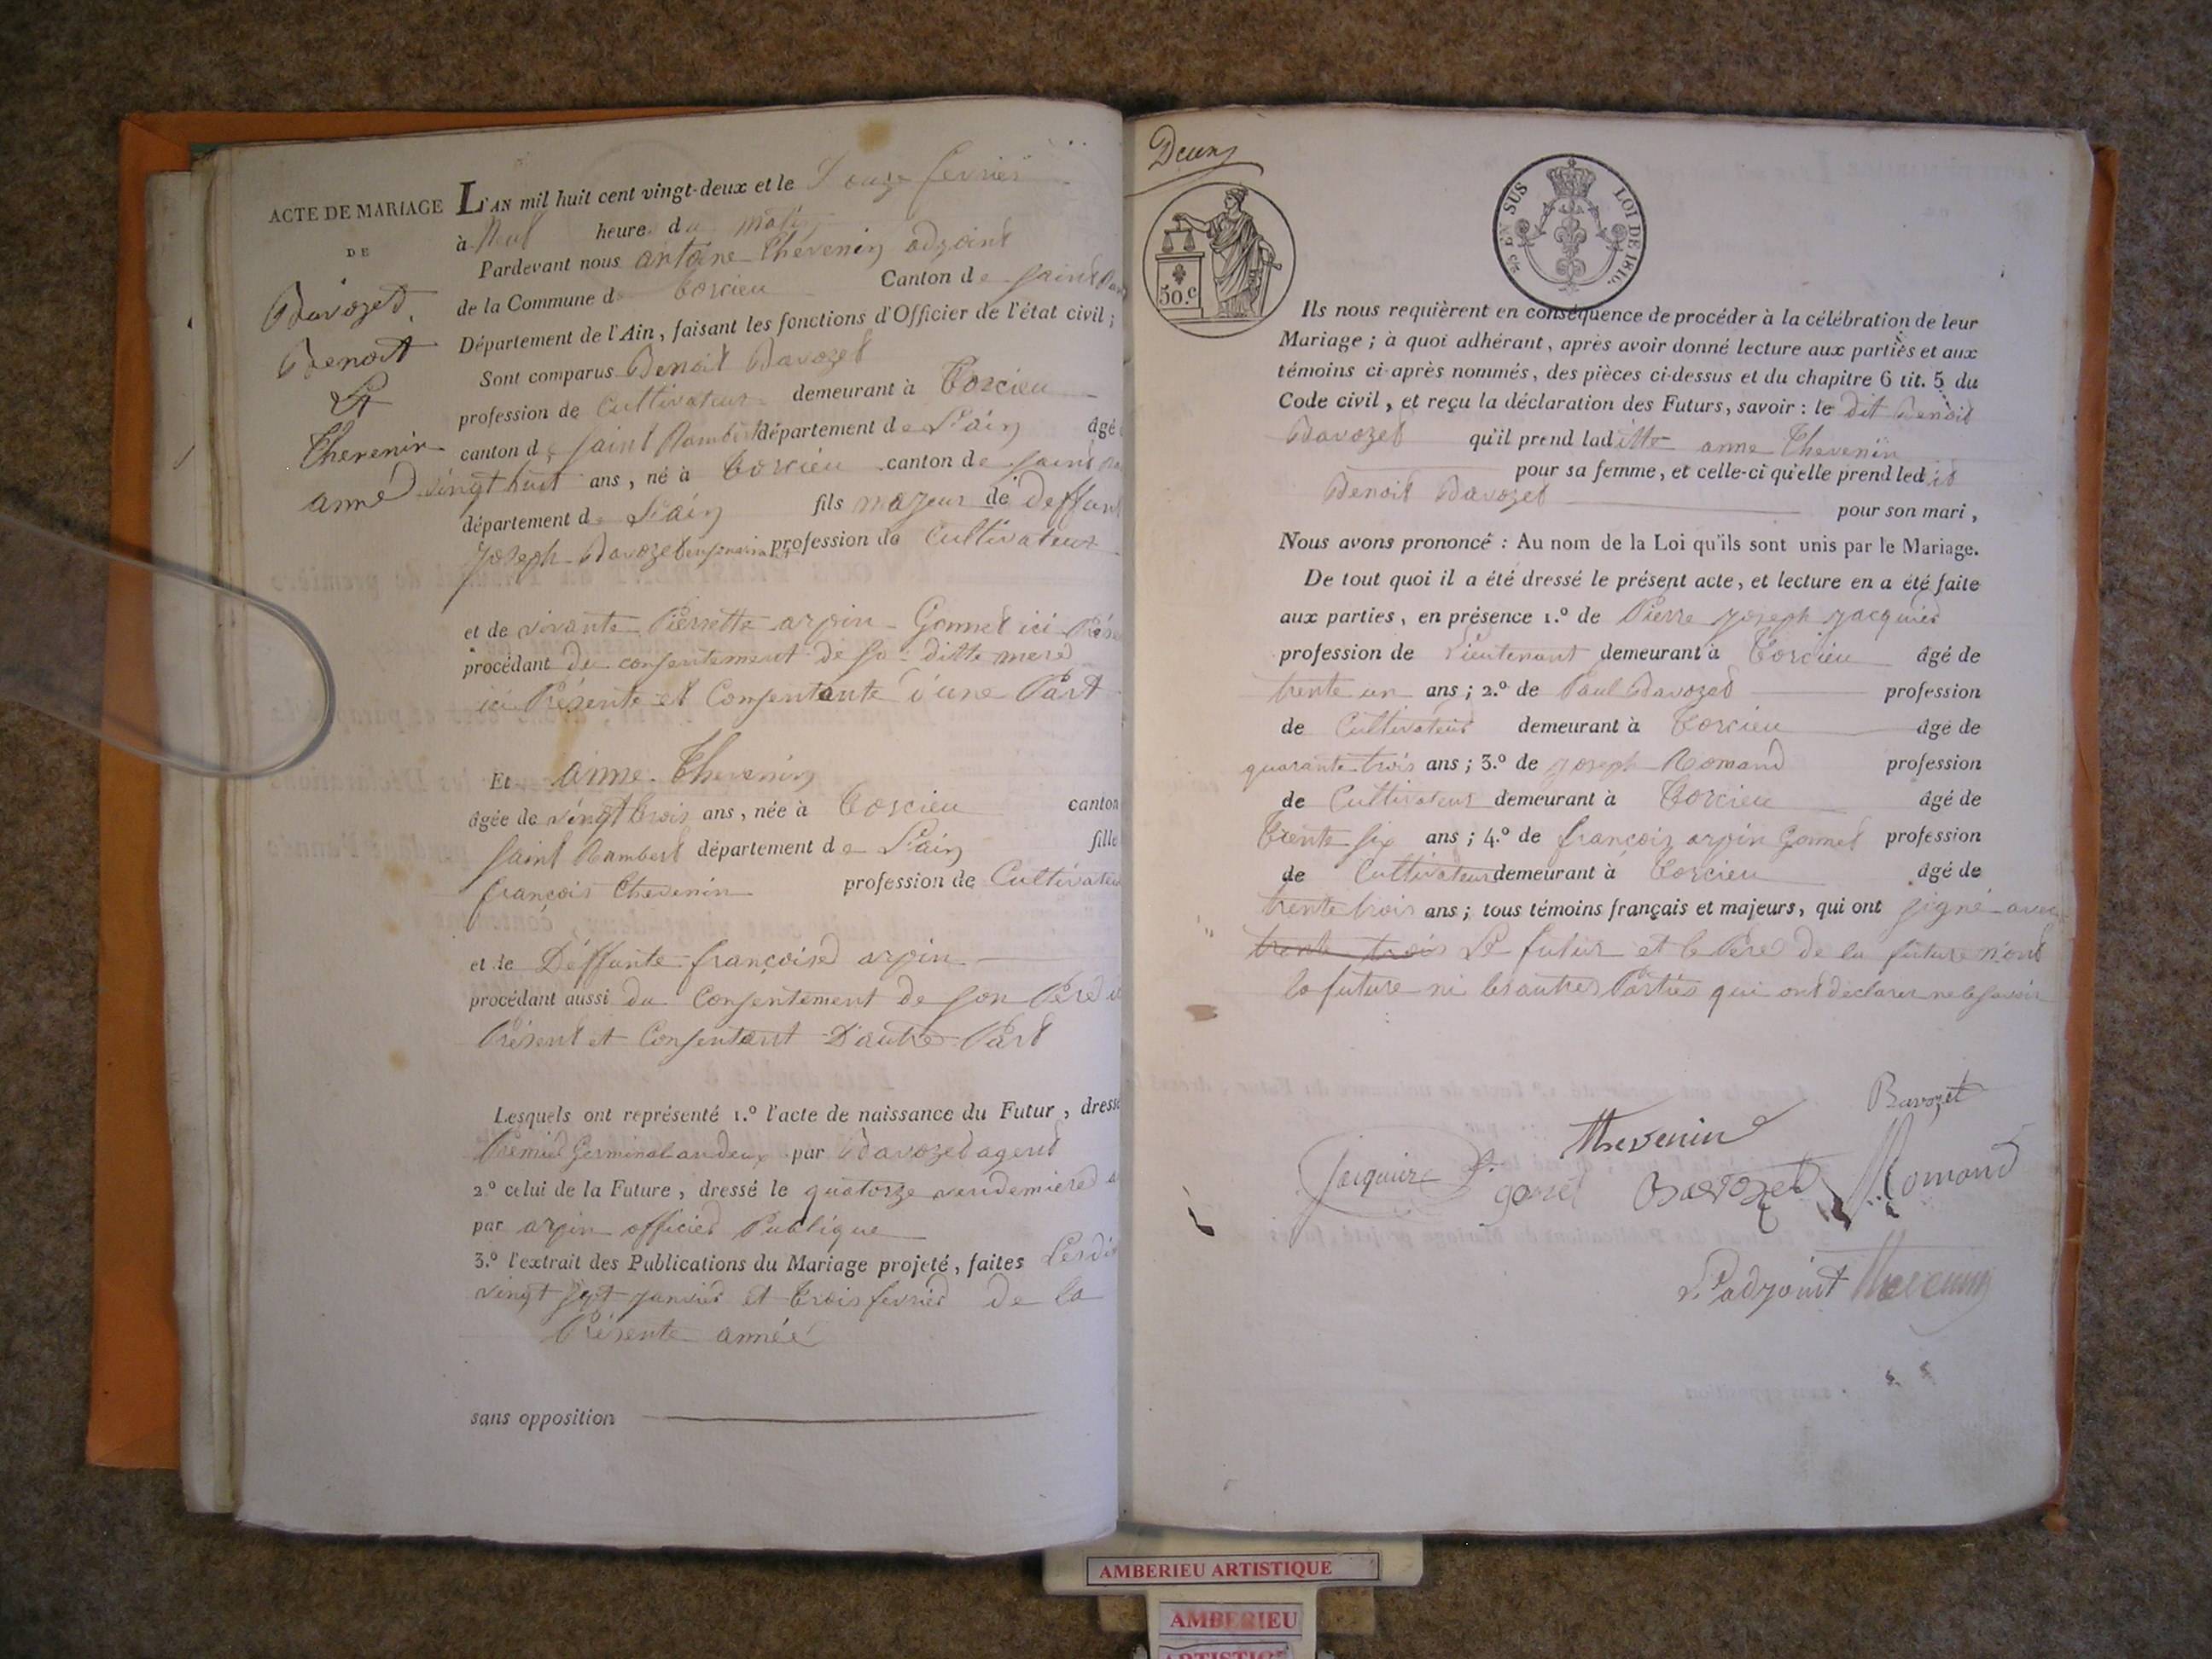 ACTE DE MARIAGE
DE
Bavozet
Benoit
Et
Thevenin
anne
L'AN mil huit cent vingt-deux et le Douze fevrier
à Neuf heure du matin
Pardevant nous antoine Thevenin adjoint
de la Commune de Torcieu Canton de Saint
Département de l'Ain, faisant les fonctions d'Officier de l'état civil;
Sont comparus Benoit Bavozet
profession de Cultivateur demeurant à Torcieu
canton de Saint Rambert département de L'ain âgé
vingt huit ans, né à Torcieu canton de Saint
département de L'ain fils majeur de deffunt
joseph Bavozet profession de Cultivateur
et de vivante Pierrette arpin Gonnet ici
procédant du consentement de sa ditte mere
ici Présente et Consentante d'une Part
Et anne Thevenin
âgée de vingt trois ans, née à Torcieu canton
Saint Rambert département de L'ain fille
françois Thevenin profession de Cultivateur
et de Deffunte françoise arpin
procédant aussi du Consentement de son Pere
Présent et Consentant D'autre Part
Lesquels ont représenté 1.º l'acte de naissance du Futur, dressé
Premier Germinal an deux par Bavozet agent
2.º celui de la Future, dressé le quatorze vendemiere
par arpin officier Publique
3.º l'extrait des Publications du Mariage projeté, faites
vingt sept janvier et trois fevrier de la
Présente année
sans opposition
Deux
50.c
EN SUS
LOI DE 1816.
Ils nous requièrent en conséquence de procéder à la célébration de leur
Mariage; à quoi adhérant, après avoir donné lecture aux parties et aux
témoins ci-après nommés, des pièces ci-dessus et du chapitre 6 tit. 5 du
Code civil, et reçu la déclaration des Futurs, savoir: le dit Benoit
Bavozet qu'il prend laditte anne Thevenin
pour sa femme, et celle-ci qu'elle prend ledit
Benoit Bavozet pour son mari,
Nous avons prononcé: Au nom de la Loi qu'ils sont unis par le Mariage.
De tout quoi il a été dressé le présent acte, et lecture en a été faite
aux parties, en présence 1.º de Pierre joseph jacquier
profession de Lieutenant demeurant à Torcieu âgé de
trente un ans; 2.º de Paul Bavozet profession
de Cultivateur demeurant à Torcieu âgé de
quarante trois ans; 3.º de joseph Romand profession
de Cultivateur demeurant à Torcieu âgé de
trente six ans; 4.º de françois arpin Gonnet profession
de Cultivateur demeurant à Torcieu âgé de
trente trois ans; tous témoins français et majeurs, qui ont signé avec
trente trois Le futur et le Pere de la future n'ont
la future ni les autres Parties qui ont déclarer ne le savoir
Bavozet
Thevenin
Jacquier gonet Bavozet Romand
L'adjoint Thevenin
AMBERIEU ARTISTIQUE
AMBERIEU
ARTISTIQUE